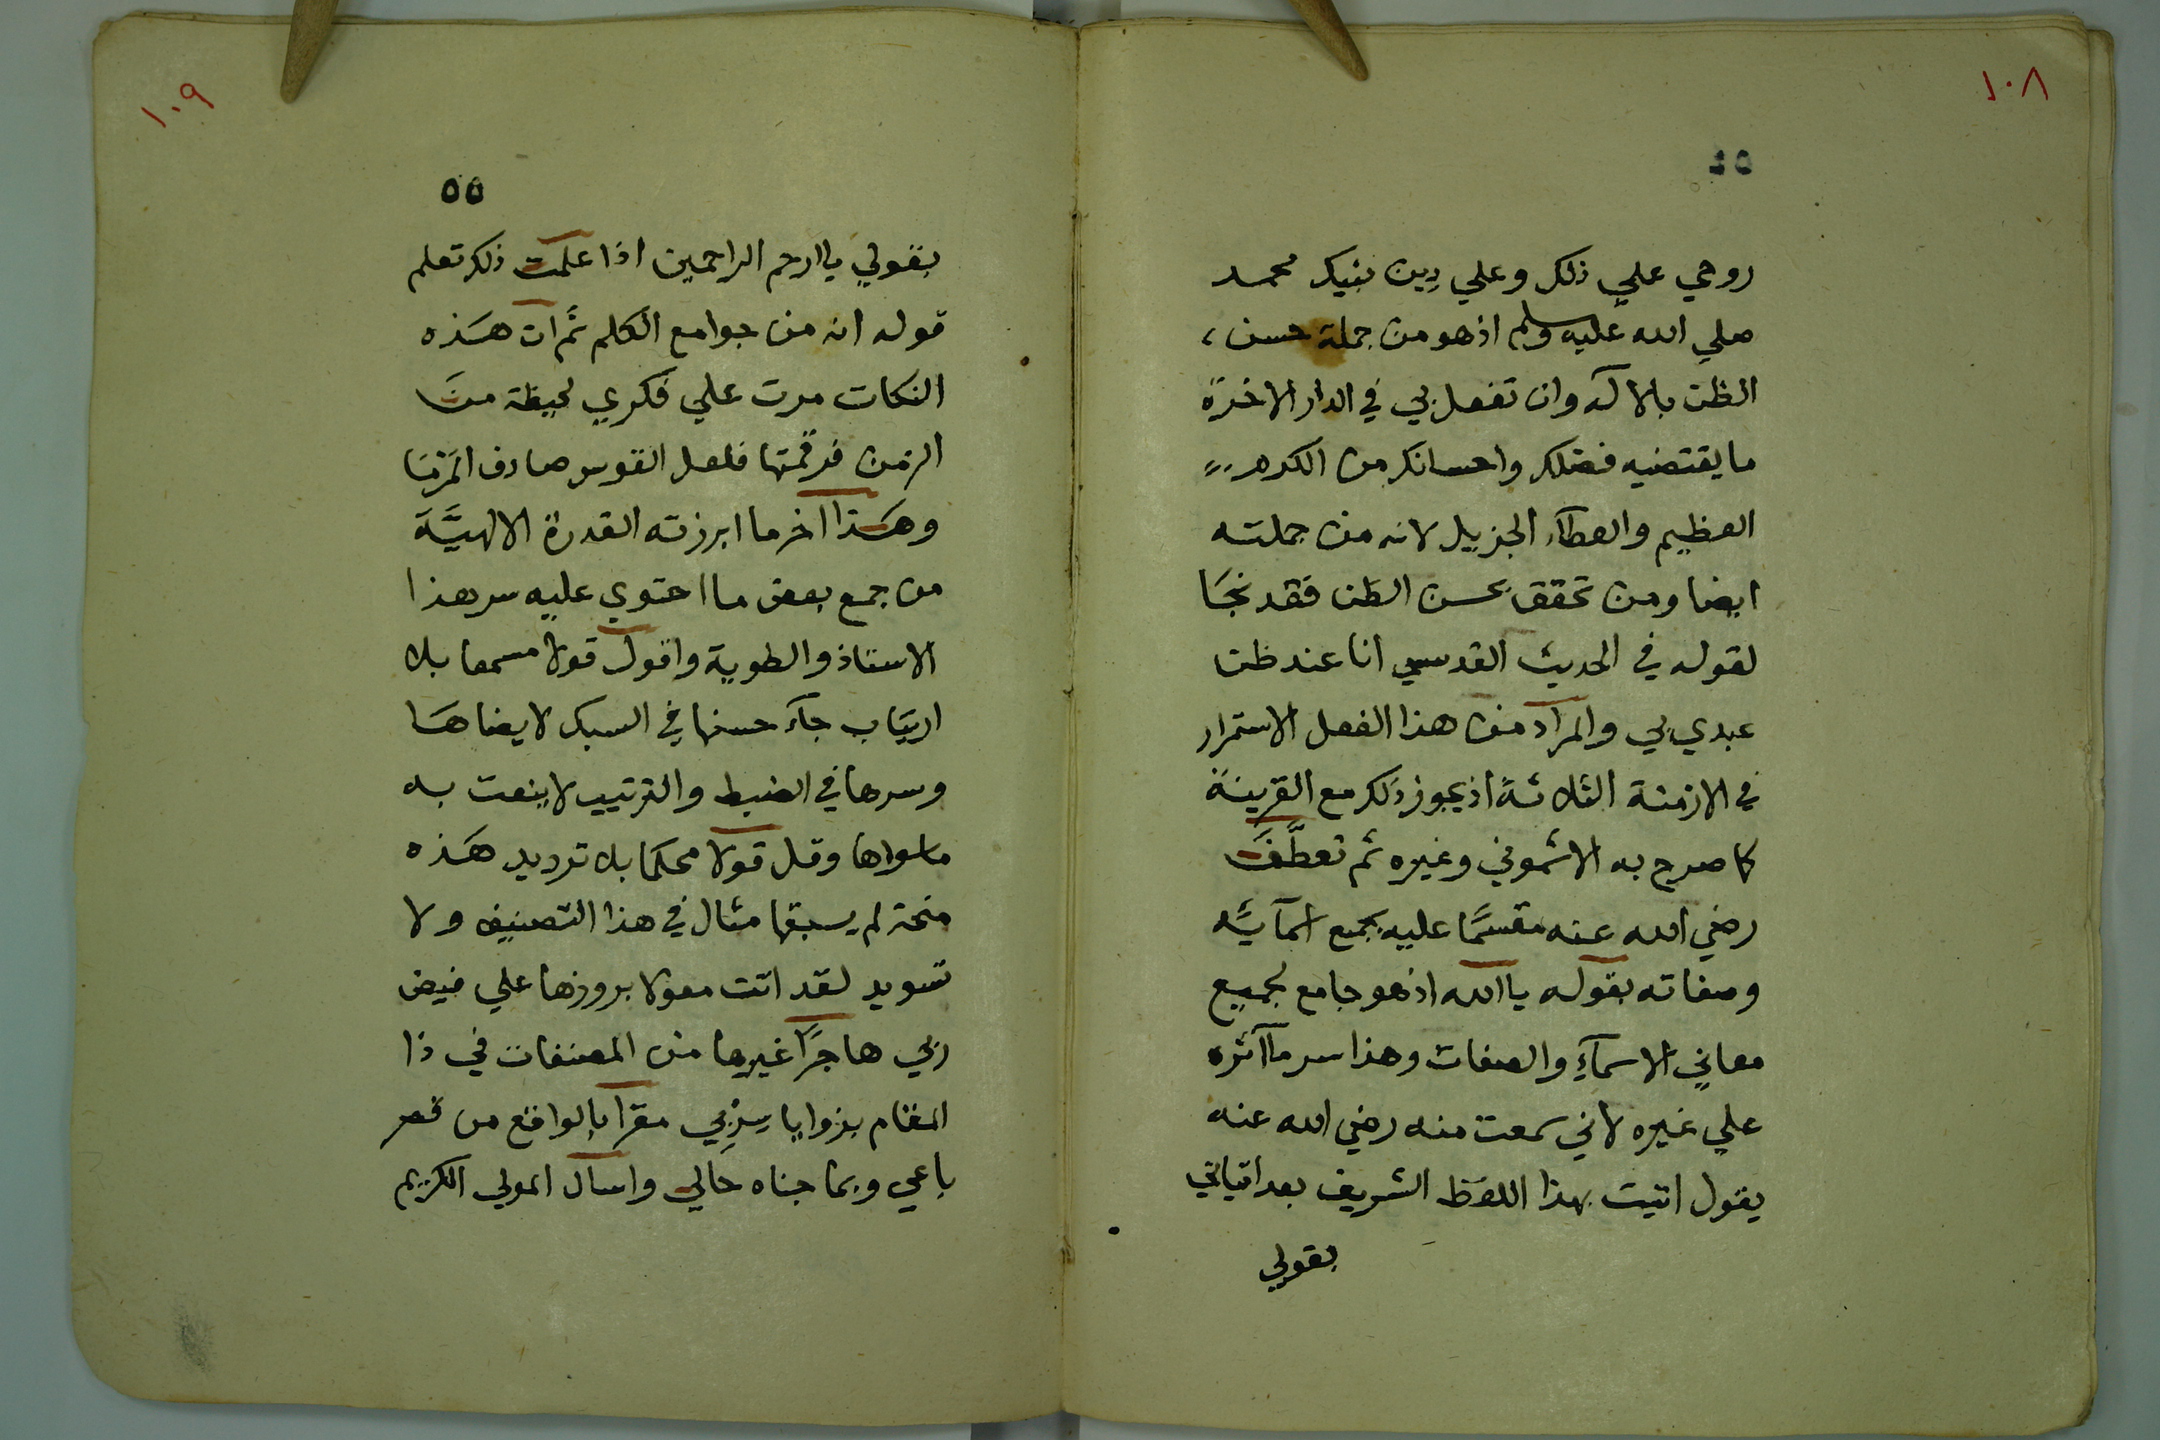 ١٠٨
٥٤
روحي علي ذلك وعلي دين نبيك محمد
صلي الله عليه وسلم اذ هو من جملة حسن
الظن بالاله وان تفعل بي في الدار الاخرة
ما يقتضيه فضلك واحسانك من الكرم
العظيم والعطآء الجزيل لانه من جملته
ايضا ومن تحقق بحسن الظن فقد نجَا
لقوله في الحديث القدسي انا عند ظن
عبدي بي والمراد من هذا الفعل الاستمرار
في الازمنة الثلاثة اذ يجوز ذلك مع القرينة
كما صرح به الاشموني وغيره ثم تعطَّفَ
رضي الله عنه مقسمًا عليه بجميع اسمآيِّه
وصفاته بقوله يا الله اذ هو جامع لجميع
معاني الاسمآءِ والصفات وهذا سر ما آثره
علي غيره لاني سمعت منه رضي الله عنه
يقول اتيت بهذا اللفظ الشريف بعد اتياني
بقولي
١٠٩
٥٥
بقولي يا ارحم الراحمين اذا علمت ذلك تعلم
قوله انه من جوامع الكلم ثم ان هَذه
النكات مرت علي فكري لحيظة منَ
الزمن فرقمتها فلعل القوس صادف المَرْمَا
وهَذا اخر ما ابرزته القدرة الالهيَّةَ
من جمع بعض ما احتوي عليه سر هذا
الاستاذ والطوية واقول قولا مسمعا بلا
ارتيَاب جآء حسنها في السبك لا يضاهَا
وسرها في الضبط والترتيب لا ينعت به
ما سواها وقل قولا محكما بلا ترديد هَذه
منحة لم يسبقها مثال في هذا التصنيف ولا
تسويد لقد اتت معولا بروزها علي فيض
ربي هاجرًا غيرها من المصنفات في ذا
المقام بزوايا سِرْبي مقرا بالواقع من قصر
باعي وبما جناه حالي واسال المولي الكريم